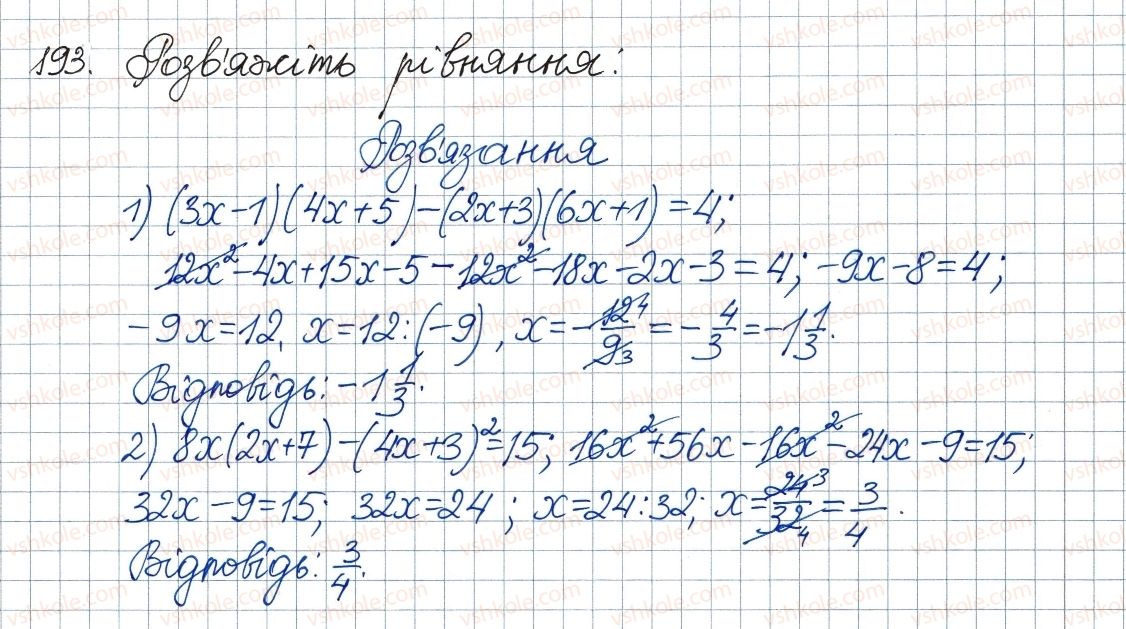 193. Розв'яжіть рівняння:
Розв'язання
1) (3x-1)(4x+5)-(2x+3)(6x+1)=4;
12x²-4x+15x-5-12x²-18x-2x-3=4; -9x-8=4;
-9x=12, x=12:(-9), x=-12⁴/9₃=-4/3=-1 1/3.
Відповідь: -1 1/3.
2) 8x(2x+7)-(4x+3)²=15; 16x²+56x-16x²-24x-9=15;
32x-9=15; 32x=24; x=24:32; x=24³/32₄=3/4.
Відповідь: 3/4.